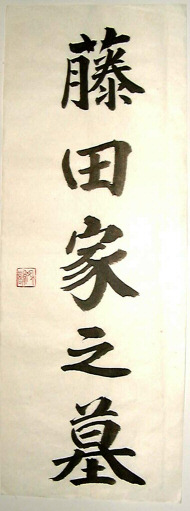 藤田家之墓